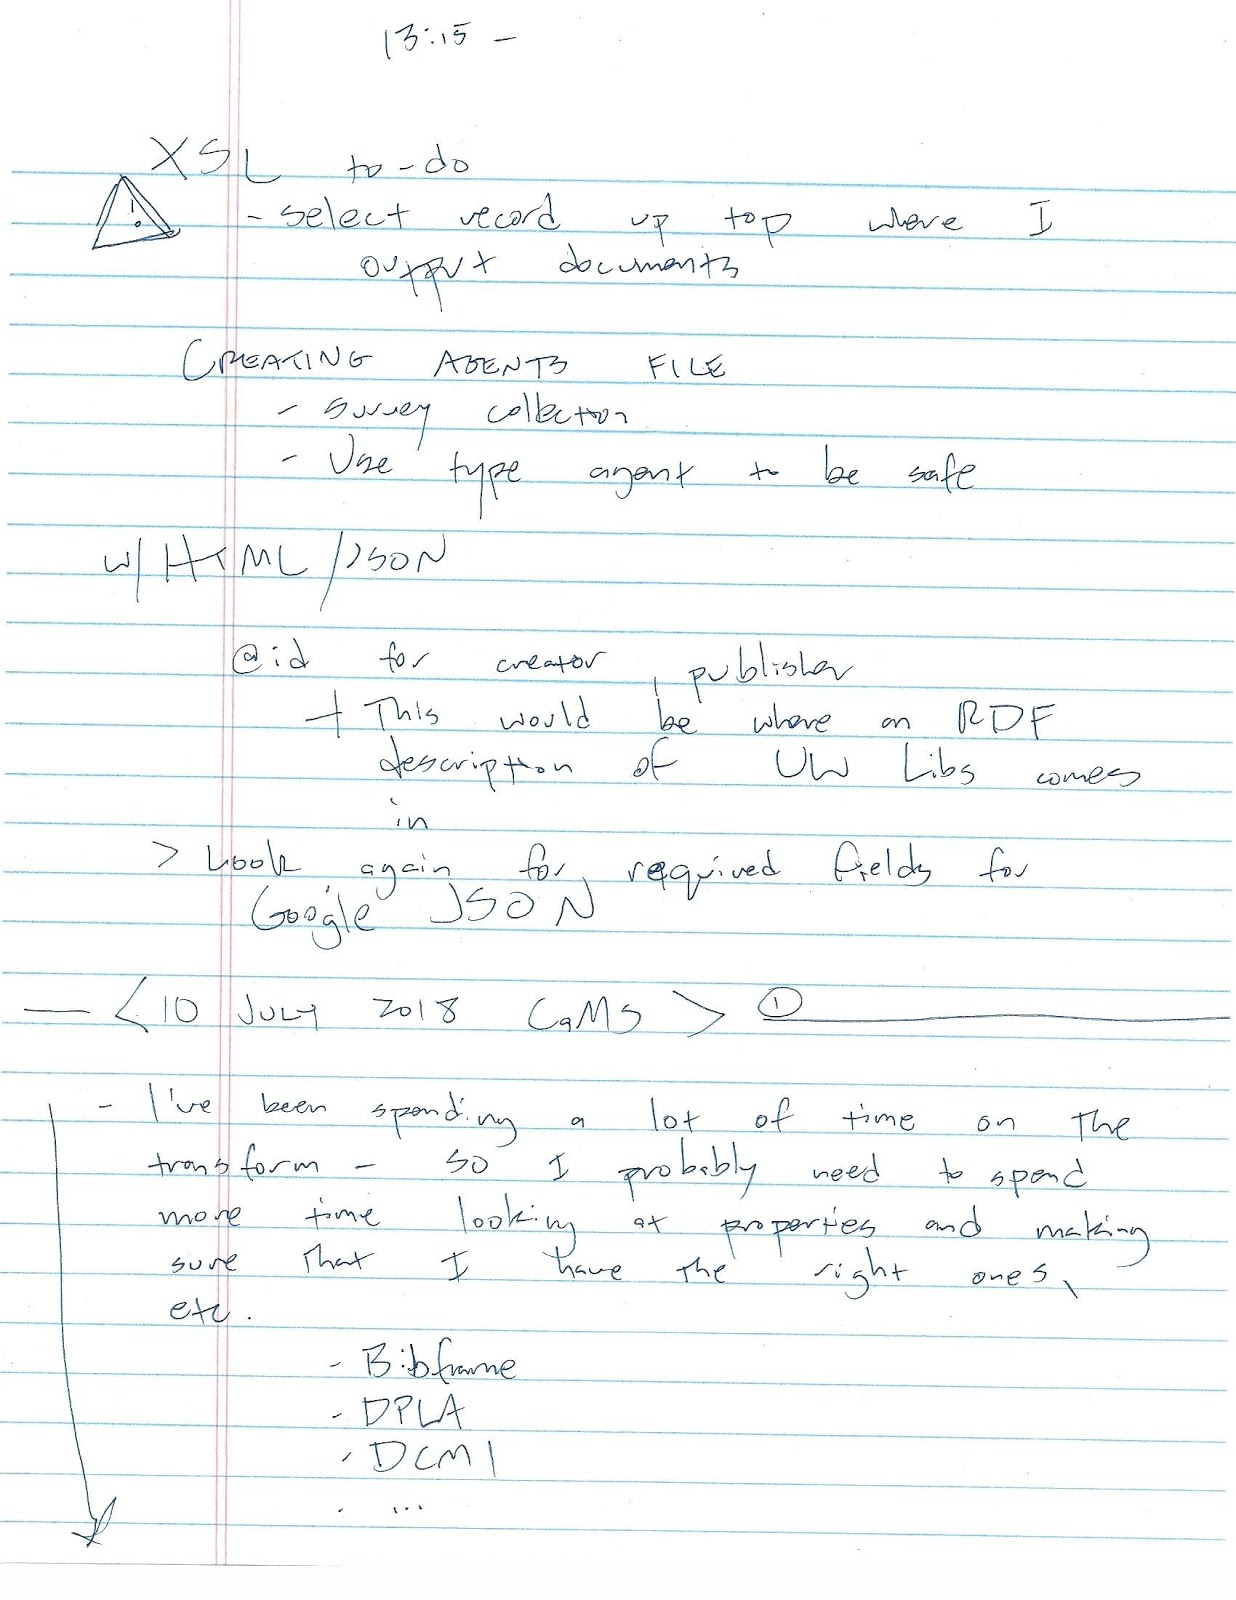 13:15 –
XSL to-do
! - select record up top where I
output documents
CREATING AGENTS FILE
- survey collection
- Use type agent to be safe
w/ HTML / JSON
@id for creator, publisher
+ This would be where an RDF
description of UW Libs comes
in
> Look again for required fields for
Google JSON
— < 10 JULY 2018 CaMS > ①
- I've been spending a lot of time on the
transform - so I probably need to spend
more time looking at properties and making
sure that I have the right ones,
etc.
- Bibframe
- DPLA
- DCMI
- ...